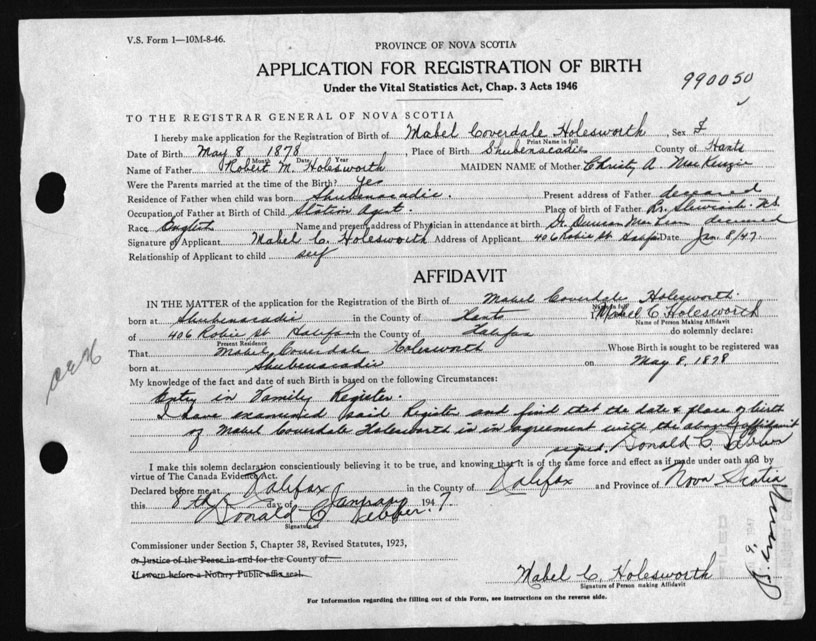 V.S. Form 1—10M-8-46.
PROVINCE OF NOVA SCOTIA
APPLICATION FOR REGISTRATION OF BIRTH
990050
Under the Vital Statistics Act, Chap. 3 Acts 1946
TO THE REGISTRAR GENERAL OF NOVA SCOTIA
I hereby make application for the Registration of Birth of Mabel Coverdale Holesworth, Sex F
Print Name in full
Date of Birth May 8 1878, Place of Birth Shubenacadie County of Hants
Month Date Year
Name of Father Robert M. Holesworth MAIDEN NAME of Mother Christy A. MacKenzie
Were the Parents married at the time of the Birth? yes
Residence of Father when child was born Shubenacadie. Present address of Father deceased
Occupation of Father at Birth of Child Station Agent. Place of birth of Father Stewiacke N.S.
Race English Name and present address of Physician in attendance at birth Dr. Duncan MacLean deceased
Signature of Applicant Mabel C. Holesworth Address of Applicant 406 Robie St Date Jan. 8/47.
Relationship of Applicant to child self
AFFIDAVIT
IN THE MATTER of the application for the Registration of the Birth of Mabel Coverdale Holesworth.
born at Shubenacadie in the County of Hants I, Mabel C. Holesworth
Name of Person Making Affidavit
of 406 Robie St Halifax in the County of Halifax do solemnly declare:
Present Residence
That Mabel Coverdale Holesworth Whose Birth is sought to be registered was
born at Shubenacadie on May 8, 1878
My knowledge of the fact and date of such Birth is based on the following Circumstances:
Entry in Family Register.
I have examined said Register and find that the date & place of birth
of Mabel Coverdale Holesworth is in agreement with the above affidavit
signed. Donald C.
I make this solemn declaration conscientiously believing it to be true, and knowing that it is of the same force and effect as if made under oath and by
virtue of The Canada Evidence Act.
Declared before me at Halifax in the County of Halifax and Province of Nova Scotia
this 8th day of January 1947
Donald C.
Signature of
Commissioner under Section 5, Chapter 38, Revised Statutes, 1923,
or Justice of the Peace in and for the County of
If sworn before a Notary Public affix seal.
Mabel C. Holesworth
Signature of Person making Affidavit
For Information regarding the filling out of this Form, see instructions on the reverse side.